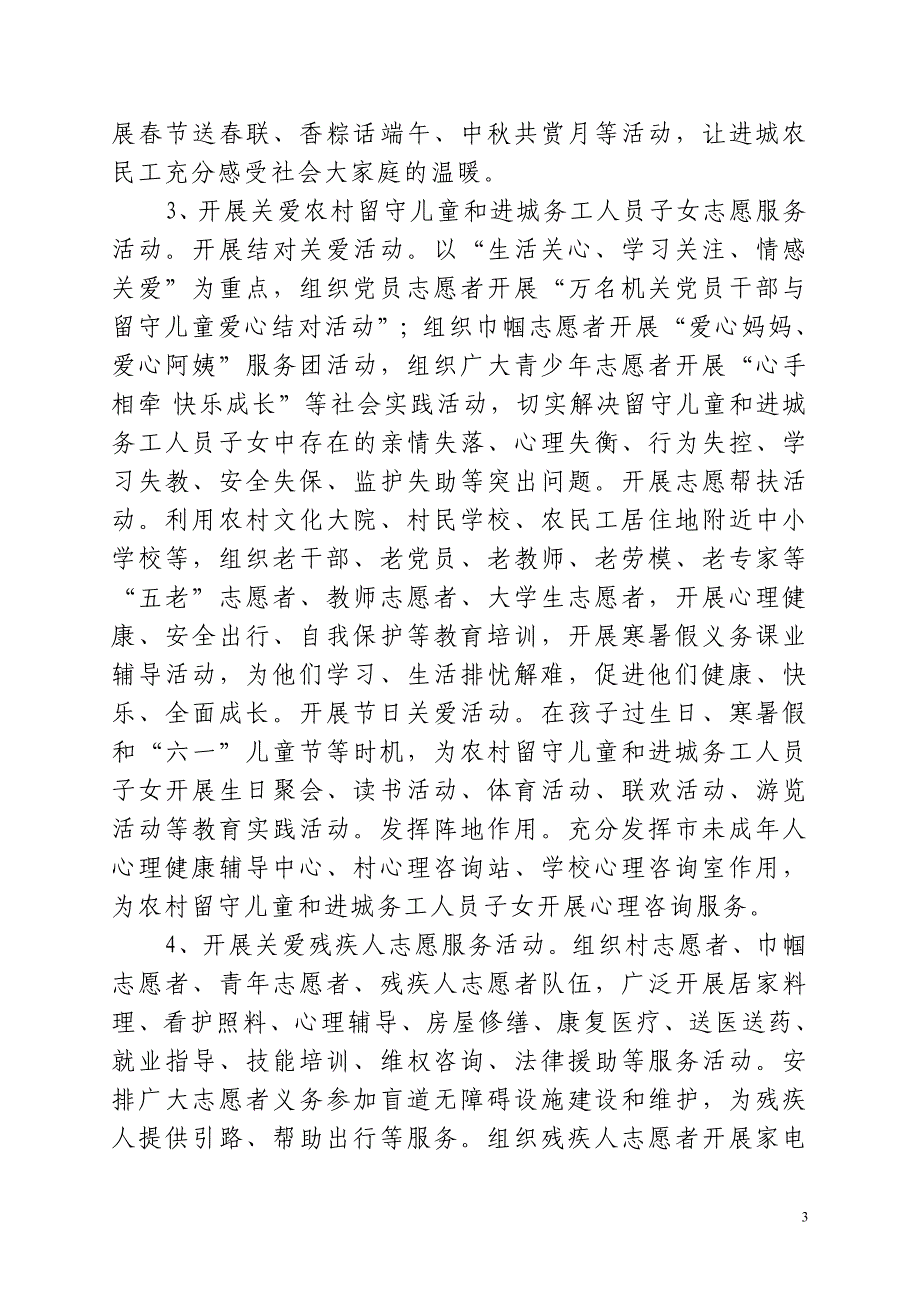 展春节送春联、香粽话端午、中秋共赏月等活动，让进城农
民工充分感受社会大家庭的温暖。
3、开展关爱农村留守儿童和进城务工人员子女志愿服务
活动。开展结对关爱活动。以“生活关心、学习关注、情感
关爱”为重点，组织党员志愿者开展“万名机关党员干部与
留守儿童爱心结对活动”；组织巾帼志愿者开展“爱心妈妈、
爱心阿姨”服务团活动，组织广大青少年志愿者开展“心手
相牵 快乐成长”等社会实践活动，切实解决留守儿童和进城
务工人员子女中存在的亲情失落、心理失衡、行为失控、学
习失教、安全失保、监护失助等突出问题。开展志愿帮扶活
动。利用农村文化大院、村民学校、农民工居住地附近中小
学校等，组织老干部、老党员、老教师、老劳模、老专家等
“五老”志愿者、教师志愿者、大学生志愿者，开展心理健
康、安全出行、自我保护等教育培训，开展寒暑假义务课业
辅导活动，为他们学习、生活排忧解难，促进他们健康、快
乐、全面成长。开展节日关爱活动。在孩子过生日、寒暑假
和“六一”儿童节等时机，为农村留守儿童和进城务工人员
子女开展生日聚会、读书活动、体育活动、联欢活动、游览
活动等教育实践活动。发挥阵地作用。充分发挥市未成年人
心理健康辅导中心、村心理咨询站、学校心理咨询室作用，
为农村留守儿童和进城务工人员子女开展心理咨询服务。
4、开展关爱残疾人志愿服务活动。组织村志愿者、巾帼
志愿者、青年志愿者、残疾人志愿者队伍，广泛开展居家料
理、看护照料、心理辅导、房屋修缮、康复医疗、送医送药、
就业指导、技能培训、维权咨询、法律援助等服务活动。安
排广大志愿者义务参加盲道无障碍设施建设和维护，为残疾
人提供引路、帮助出行等服务。组织残疾人志愿者开展家电
3